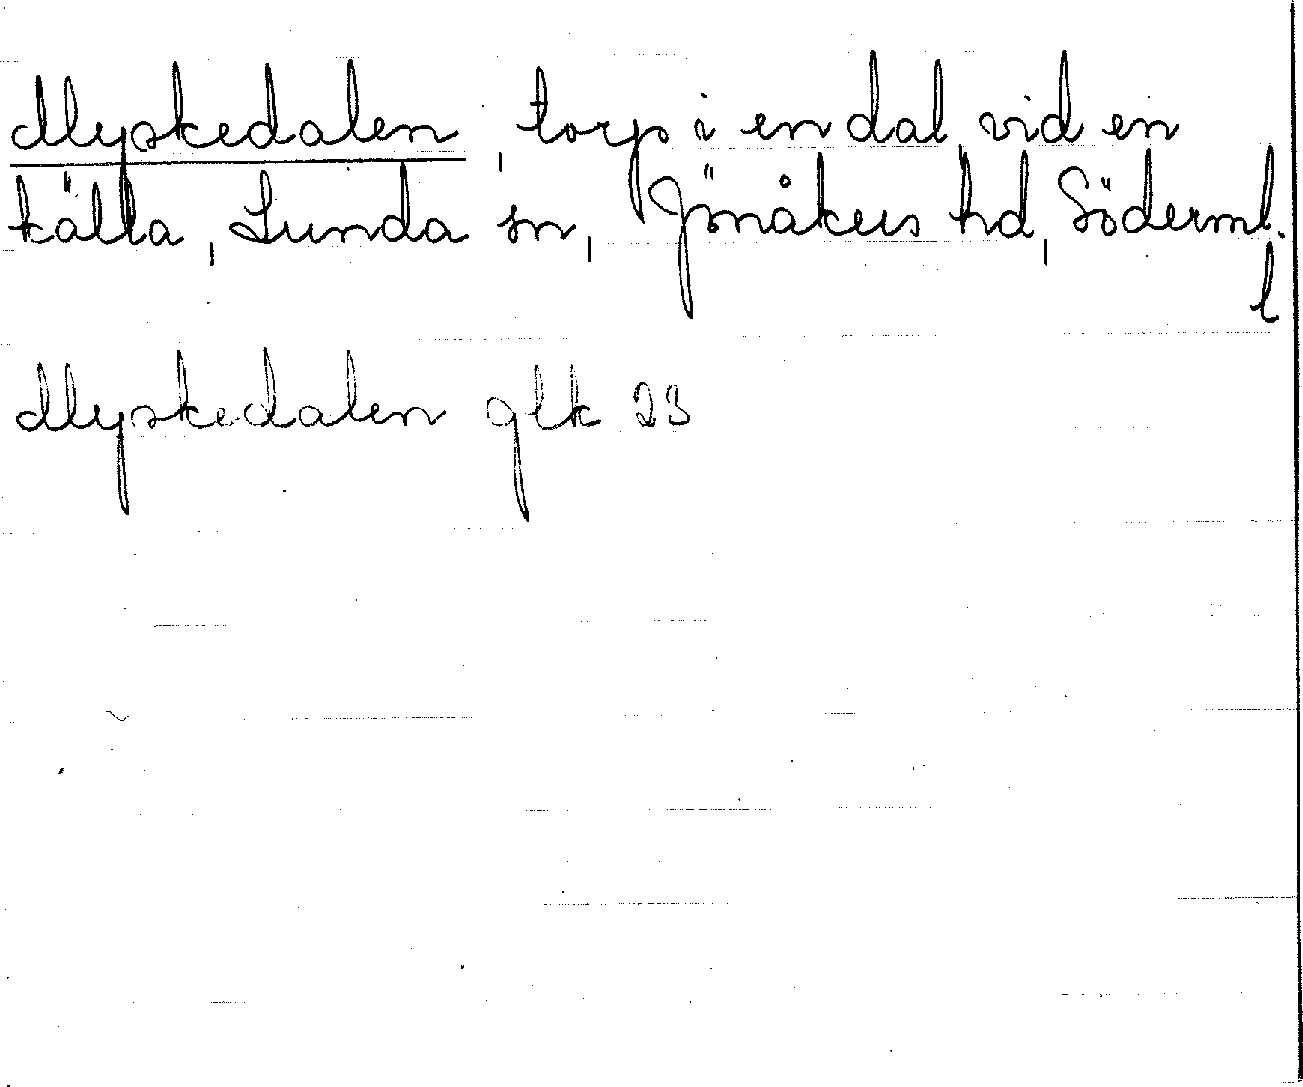 Myskedalen, torp i en dal vid en
källa, Lunda sn, Jönåkers hd, Söderml.
l
Myskedalen glk 23